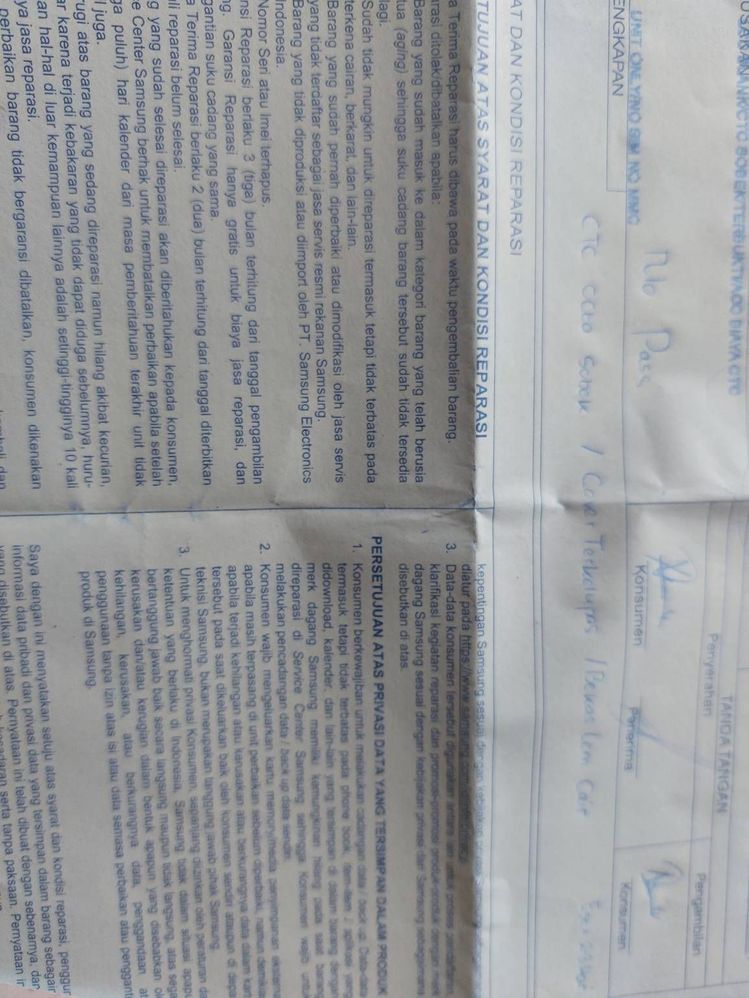 TANDA TANGAN
Penyerahan
Pengambilan
Konsumen
Penerima
Konsumen
UNIT ONLY/NO SIM NO MMC
ENGKAPAN
No
CTC
/ Cover Terkelupas /
AT DAN KONDISI REPARASI
TUJUAN ATAS SYARAT DAN KONDISI REPARASI
a Terima Reparasi harus dibawa pada waktu pengembalian barang.
rasi ditolak/dibatalkan apabila:
Barang yang sudah masuk ke dalam kategori barang yang telah berusia
tua (aging) sehingga suku cadang barang tersebut sudah tidak tersedia
lagi.
Sudah tidak mungkin untuk direparasi termasuk tetapi tidak terbatas pada
terkena cairan, berkarat, dan lain-lain.
Barang yang sudah pernah diperbaiki atau dimodifikasi oleh jasa servis
yang tidak terdaftar sebagai jasa servis resmi rekanan Samsung.
Barang yang tidak diproduksi atau diimport oleh PT. Samsung Electronics
Indonesia.
Nomor Seri atau Imei terhapus.
nsi Reparasi berlaku 3 (tiga) bulan terhitung dari tanggal pengambilan
ng. Garansi Reparasi hanya gratis untuk biaya jasa reparasi, dan
gantian suku cadang yang sama.
a Terima Reparasi berlaku 2 (dua) bulan terhitung dari tanggal diterbitkan
li reparasi belum selesai.
g yang sudah selesai direparasi akan diberitahukan kepada konsumen,
e Center Samsung berhak untuk membatalkan perbaikan apabila setelah
ga puluh) hari kalender dari masa pemberitahuan terakhir unit tidak
l juga.
rugi atas barang yang sedang direparasi namun hilang akibat kecurian,
ar karena terjadi kebakaran yang tidak dapat diduga sebelumnya, huru-
an hal-hal di luar kemampuan lainnya adalah setinggi-tingginya 10 kali
ya jasa reparasi.
perbaikan barang tidak bergaransi dibatalkan, konsumen dikenakan
kepentingan Samsung sesuai dengan kebijakan privasi
diatur pada https://www.samsung.com
3. Data-data konsumen tersebut digunakan antara lain untuk proses
klarifikasi kegiatan reparasi dan promosi-promosi produk-produk dengan
dagang Samsung sesuai dengan kebijakan privasi dari Samsung sebagaimana
disebutkan di atas.
PERSETUJUAN ATAS PRIVASI DATA YANG TERSIMPAN DALAM PRODUK
1. Konsumen berkewajiban untuk melakukan cadangan data / back up. Data-data
termasuk tetapi tidak terbatas pada phone book, item-item / aplikasi yang
didownload, kalender, dan lain-lain yang tersimpan di dalam barang dengan
merk dagang Samsung memiliki kemungkinan hilang pada saat barang
direparasi di Service Center Samsung sehingga Konsumen wajib untuk
melakukan pencadangan data / back up data sendiri.
2. Konsumen wajib mengeluarkan kartu memory/media penyimpanan eksternal
apabila masih terpasang di unit perbaikan sebelum diperbaiki, namun demikian
apabila terjadi kehilangan atau kerusakan atau berkurangnya data dalam kartu
tersebut pada saat dikeluarkan baik oleh konsumen sendiri ataupun di depan
teknisi Samsung, bukan merupakan tanggung jawab pihak Samsung.
3. Untuk menghormati privasi Konsumen, sepanjang diizinkan oleh peraturan dan
ketentuan yang berlaku di Indonesia, Samsung tidak dalam situasi apapun
bertanggung jawab baik secara langsung maupun tidak langsung, atas segala
kerusakan dan/atau kerugian dalam bentuk apapun yang disebabkan ol
kehilangan, kerusakan, atau berkurangnya data, penggandaan at
penggunaan tanpa izin atas isi atau data semasa perbaikan atau pengganti
produk di Samsung.
Saya dengan ini menyatakan setuju atas syarat dan kondisi reparasi, penggun
informasi data pribadi dan privasi data yang tersimpan dalam barang sebagaim
yang disebutkan di atas. Pernyataan ini telah dibuat dengan sebenarnya, dan
kesadaran serta tanpa paksaan. Pernyataan in